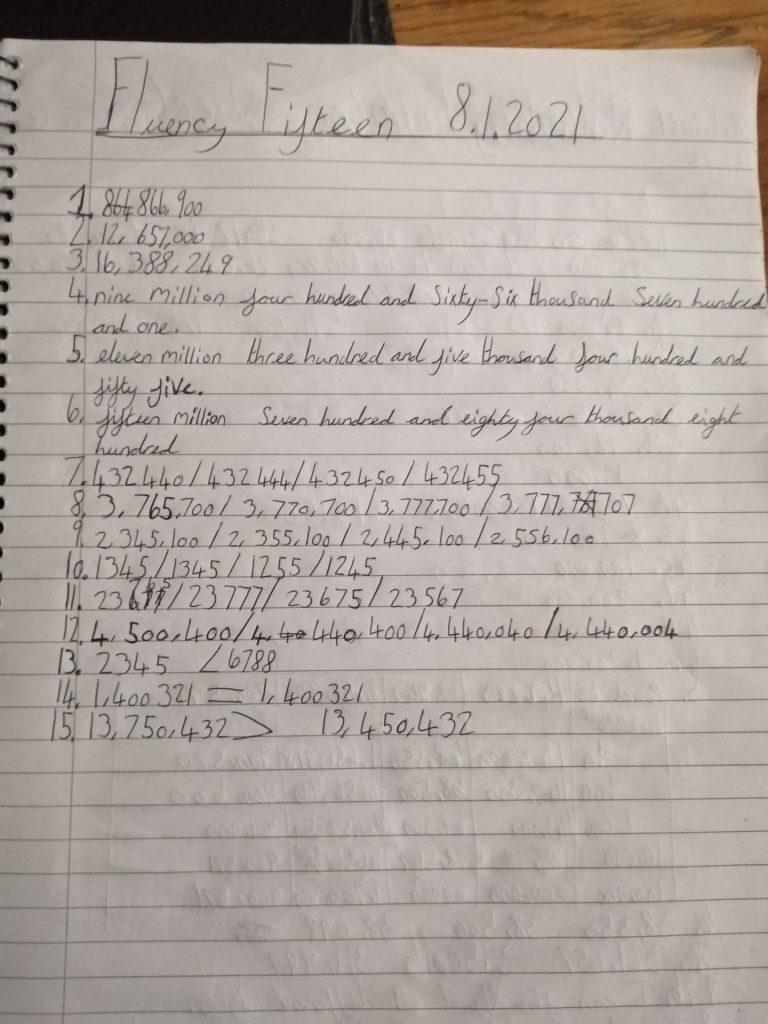 Fluency Fifteen 8.1.2021
1. 864 866,900
2. 12, 657,000
3. 16, 388, 249
4. nine million four hundred and Sixty-Six thousand Seven hundred
and one.
5. eleven million three hundred and five thousand four hundred and
fifty five.
6. fifteen million Seven hundred and eighty four thousand eight
hundred
7. 432440/432444/432450/432455
8. 3,765,700/ 3,770,700/3,777,700/3,777,707
9. 2,345,100/2,355,100/2,445,100/2,556,100
10. 1345/1345/1255/1245
11. /23777/23675/23567
12. 4,500,400/4,440,400/4,440,040/4,440,004
13. 2345 / 6788
14. 1,400321 = 1,400321
15. 13,750,432 > 13,450,432